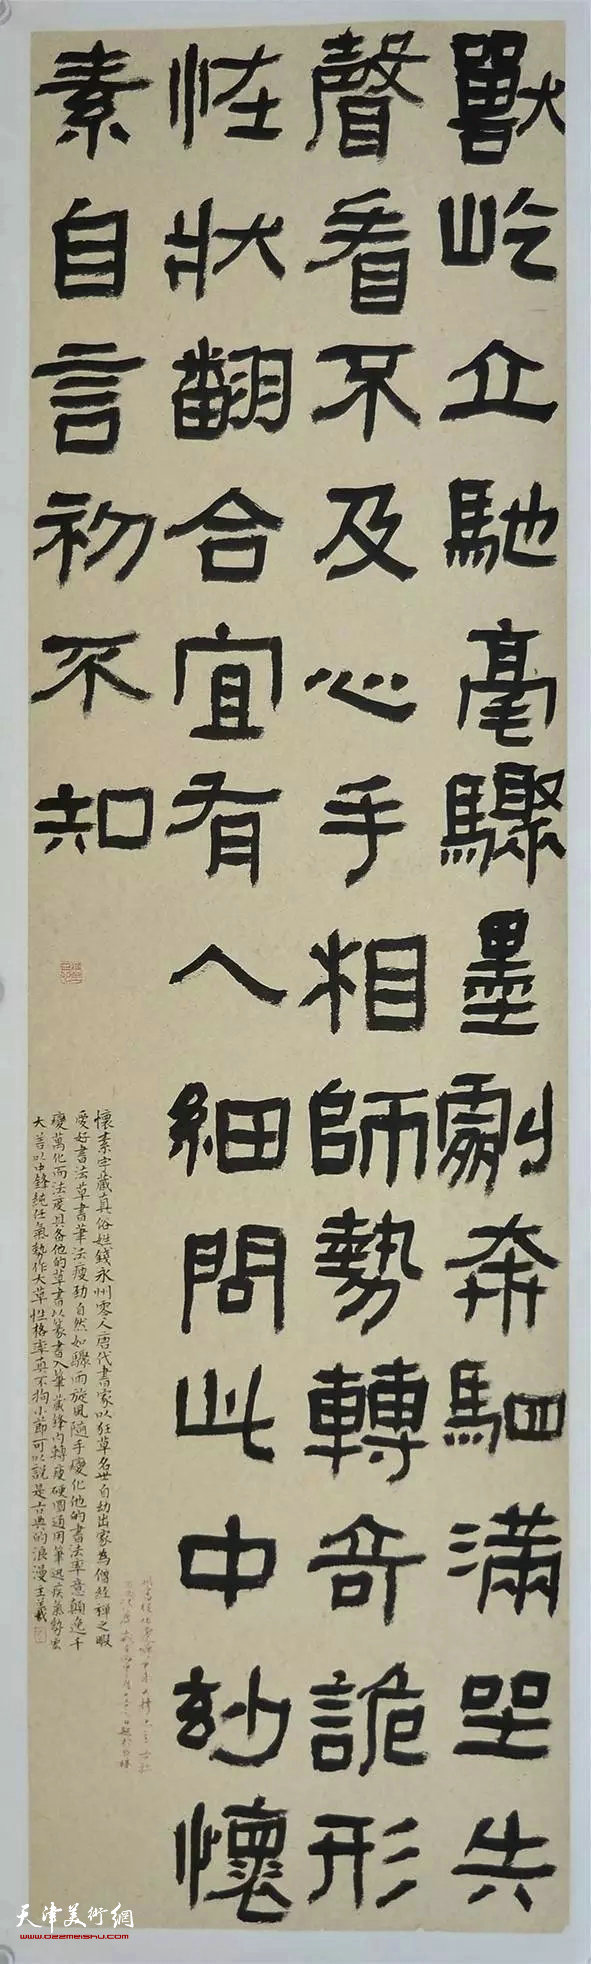 獸屹立馳毫驟墨劇奔駟滿坐失
聲看不及心手相師勢轉奇詭形
恠狀翻合宜有人細問此中妙懷
素自言初不知
懷素字藏真俗姓錢永州零人唐代書家以狂草名世自幼出家為僧經禪之暇
愛好書法草書筆法瘦勁自然如驟雨旋風隨手變化他的書法率意顛逸千
變萬化而法度具备他的草書以篆書入筆藏鋒内轉瘦硬圓通用筆迅疾氣勢宏
大善以中鋒純任氣勢作大草性格率真不拘小節可以說是古典的浪漫主義
天津美術網
www.022meishu.com